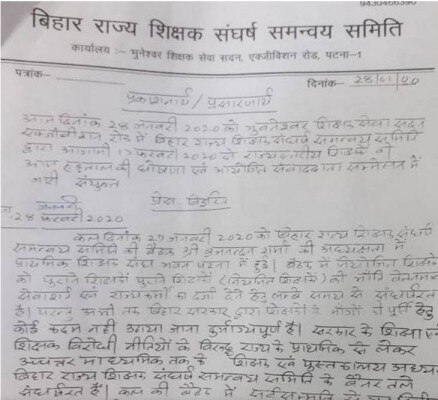 9430466390
बिहार राज्य शिक्षक संघर्ष समन्वय समिति
कार्यालय :- मुनेश्वर शिक्षक सेवा सदन, एक्जीविशन रोड, पटना-1
पत्रांक- दिनांक- 28/01/20
प्रकाशनार्थ / प्रसारणार्थ
आज दिनांक 28 जनवरी 2020 को भुवनेश्वर शिक्षक सेवा सदन
एक्जीविशन रोड में बिहार राज्य शिक्षक संघर्ष समन्वय समिति
द्वारा आगामी 17 फरवरी 2020 से राज्यस्तरीय शिक्षकों की
आम हड़ताल की घोषणा एवं आयोजित संवाददाता सम्मेलन में
जारी संयुक्त
प्रेस विज्ञप्ति
28 फरवरी 2020 जनवरी
कल दिनांक 27 जनवरी 2020 को बिहार राज्य शिक्षक संघर्ष
समन्वय समिति की बैठक श्री ब्रजनन्दन शर्मा की अध्यक्षता में
प्राथमिक शिक्षक संघ भवन पटना में हुई। बैठक में नियोजित शिक्षकों
को पुराने शिक्षकों (नियमित शिक्षकों) की भाँति वेतनमान
सेवाशर्त एवं राज्यकर्मी का दर्जा देने हेतु लम्बे समय से संघर्षरत
है। परन्तु अभी तक बिहार सरकार द्वारा शिक्षकों के माँगों की पूर्ति हेतु
कोई कदम नहीं उठाया जाना दुर्भाग्यपूर्ण है। सरकार के शिक्षा एवं
शिक्षक विरोधी नीतियों के विरुद्ध राज्य के प्राथमिक से लेकर
उच्चतर माध्यमिक तक के शिक्षक एवं पुस्तकालय अध्यक्ष
बिहार राज्य शिक्षक संघर्ष समन्वय समिति के बैनर तले
संघर्षरत हैं। कल की बैठक में सर्वसम्मति से